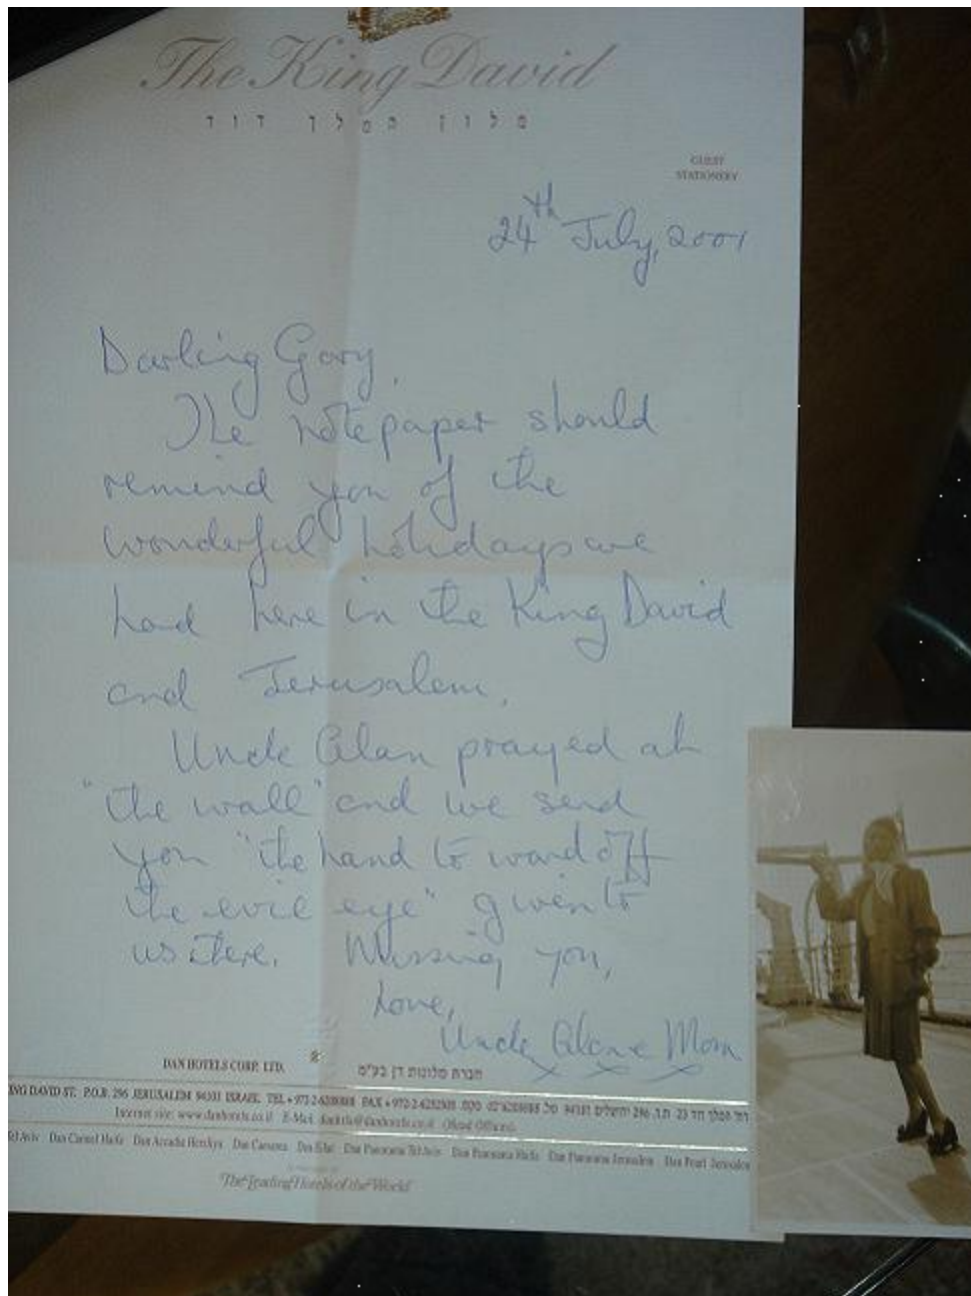 The King David
מלון המלך דוד
GUEST
STATIONERY
24th July, 2001
Darling Gary,
The notepaper should
remind you of the
wonderful holidays we
had here in the King David
and Jerusalem.
Uncle Alan prayed at
"the wall" and we send
you "the hand to ward off
the evil eye" given to
us there. Missing you,
Love,
Uncle Alan & Mom
x x x
DAN HOTELS CORP. LTD. חברת מלונות דן בע"מ
ING DAVID ST. P.O.B. 296 JERUSALEM 94101 ISRAEL. TEL +972-2-6208888 FAX +972-2-6232303
Internet site: www.danhotels.co.il E-Mail:
Tel Aviv Dan Carmel Haifa Dan Accadia Herzliya Dan Caesarea Dan Eilat Dan Panorama Tel Aviv Dan Panorama Haifa Dan Panorama Jerusalem Dan Pearl Jerusalem
The Leading Hotels of the World